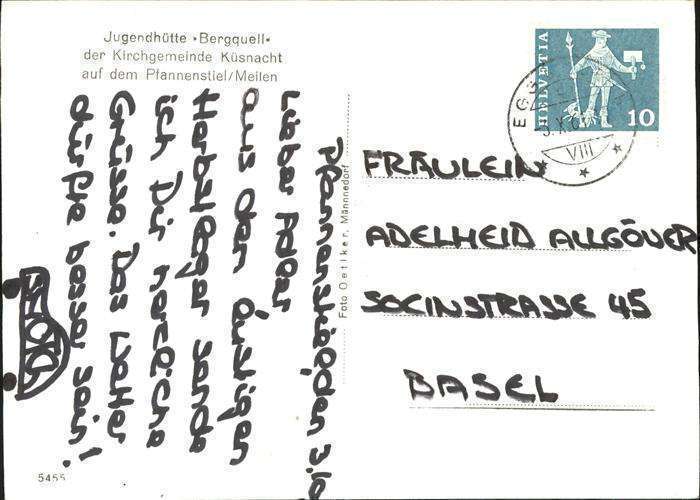 Jugendhütte «Bergquell»
der Kirchgemeinde Küsnacht
auf dem Pfannenstiel/Meilen
Pfannenstiel, den 3.10
Lieber Adler
Aus dem lustigen
Herbstlager sende
ich Dir herzliche
Grüsse. Das Wetter
dürfte besser sein!
Foto Oetiker, Männedorf
HELVETIA
10
EG
VIII
FRÄULEIN
ADELHEID ALLGÖWER
SOCINSTRASSE 45
BASEL
5455